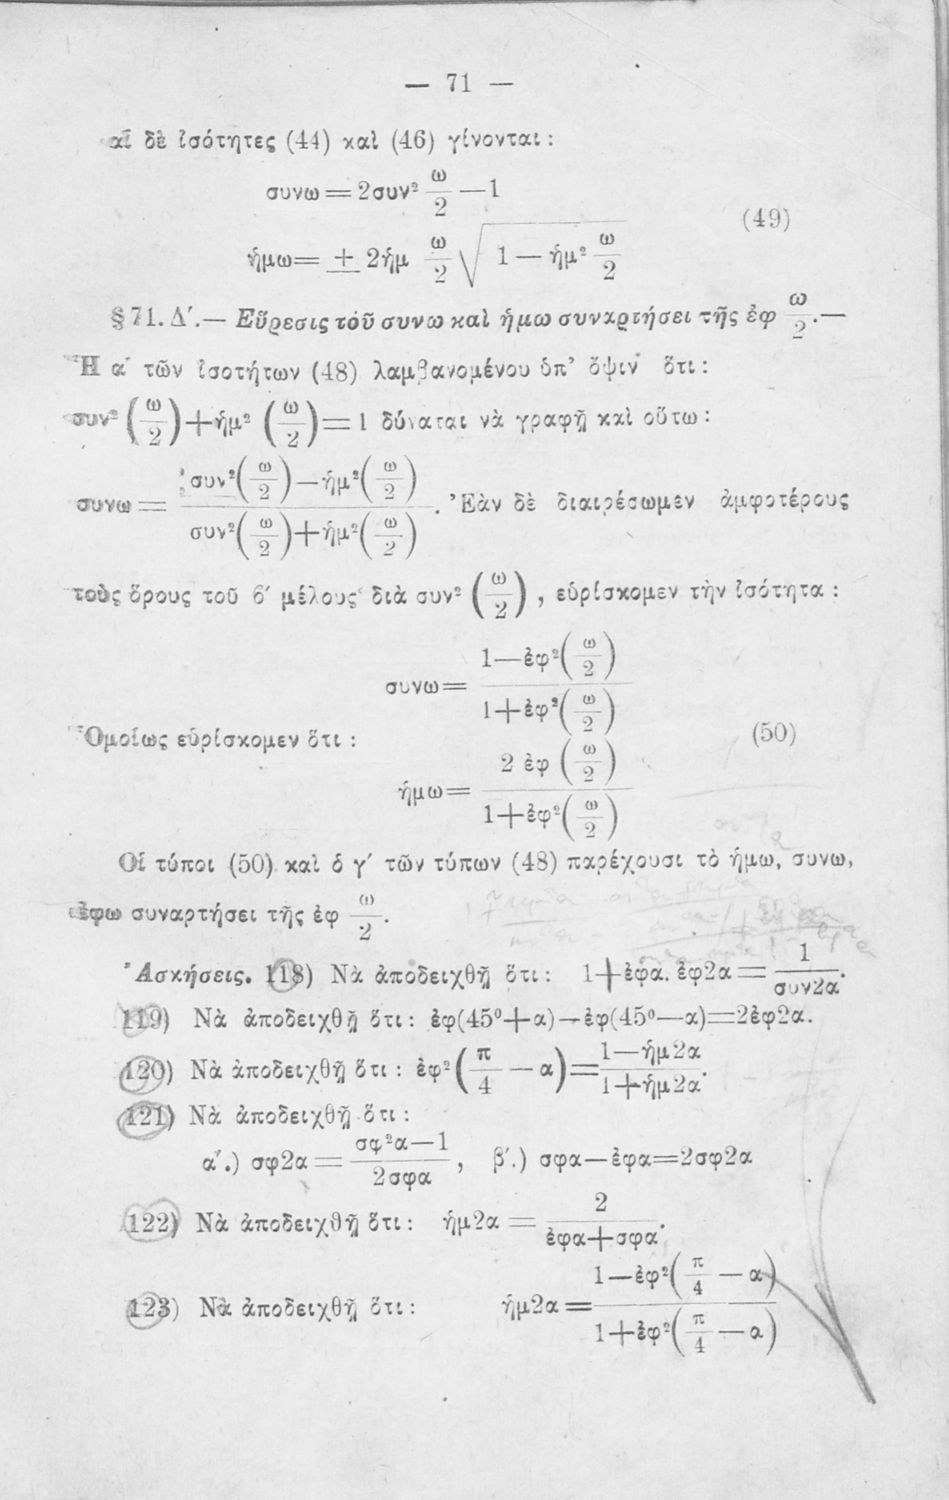 — 71 —
αἱ δὲ ἰσότητες (44) καὶ (46) γίνονται :
συνω = 2συν² ω/2 — 1
ἡμω = ± 2ἡμ ω/2 √ 1 — ἡμ² ω/2 (49)
§ 71. Δ΄.— Εὕρεσις τοῦ συνω καὶ ἡμω συναρτήσει τῆς ἐφ ω/2.—
Ἡ α΄ τῶν ἰσοτήτων (48) λαμβανομένου ὑπ' ὄψιν ὅτι :
συν² (ω/2) + ἡμ² (ω/2) = 1 δύναται νὰ γραφῇ καὶ οὕτω :
συνω = συν²(ω/2) — ἡμ²(ω/2) / συν²(ω/2) + ἡμ²(ω/2) . Ἐὰν δὲ διαιρέσωμεν ἀμφοτέρους
τοὺς ὅρους τοῦ β΄ μέλους διὰ συν² (ω/2) , εὑρίσκομεν τὴν ἰσότητα :
συνω = 1—ἐφ²(ω/2) / 1+ἐφ²(ω/2)
Ὁμοίως εὑρίσκομεν ὅτι : (50)
ἡμω = 2 ἐφ (ω/2) / 1+ἐφ²(ω/2)
Οἱ τύποι (50) καὶ ὁ γ΄ τῶν τύπων (48) παρέχουσι τὸ ἡμω, συνω,
ἐφω συναρτήσει τῆς ἐφ ω/2.
Ἀσκήσεις. 118) Νὰ ἀποδειχθῇ ὅτι : 1+ἐφα. ἐφ2α = 1/συν2α.
119) Νὰ ἀποδειχθῇ ὅτι : ἐφ(45⁰+α)—ἐφ(45⁰—α)=2ἐφ2α.
120) Νὰ ἀποδειχθῇ ὅτι : ἐφ² (π/4 — α) = 1—ἡμ2α / 1+ἡμ2α.
121) Νὰ ἀποδειχθῇ ὅτι :
α΄.) σφ2α = σφ²α—1 / 2σφα , β΄.) σφα—ἐφα=2σφ2α
122) Νὰ ἀποδειχθῇ ὅτι : ἡμ2α = 2 / ἐφα+σφα.
123) Νὰ ἀποδειχθῇ ὅτι : ἡμ2α = 1—ἐφ²(π/4 — α) / 1+ἐφ²(π/4 — α)